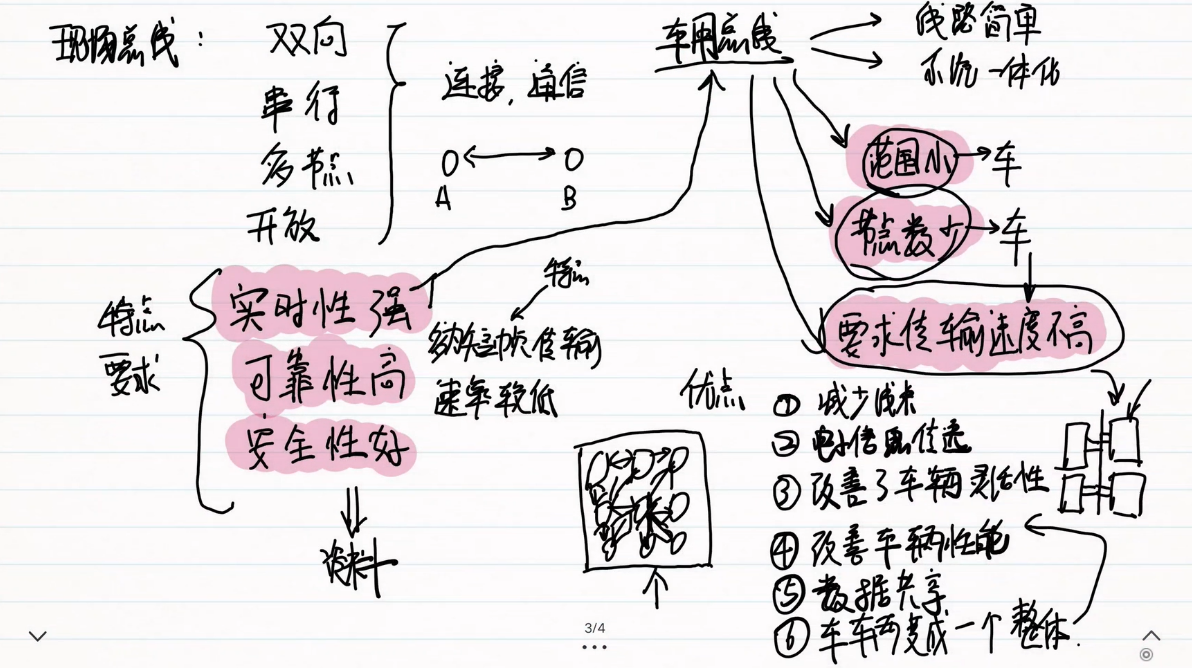 现场总线：
双向
串行
多节点
开放
连接，通信
A
B
车用总线
线路简单
系统一体化
范围小
车
节点数少
车
要求传输速度不高
特点
要求
实时性强
可靠性高
安全性好
资料
特点
短帧传输
速率较低
优点
① 减少线束
② 电子信息传送
③ 改善了车辆灵活性
④ 改善车辆性能
⑤ 数据共享
⑥ 车车两变成一个整体.
3/4